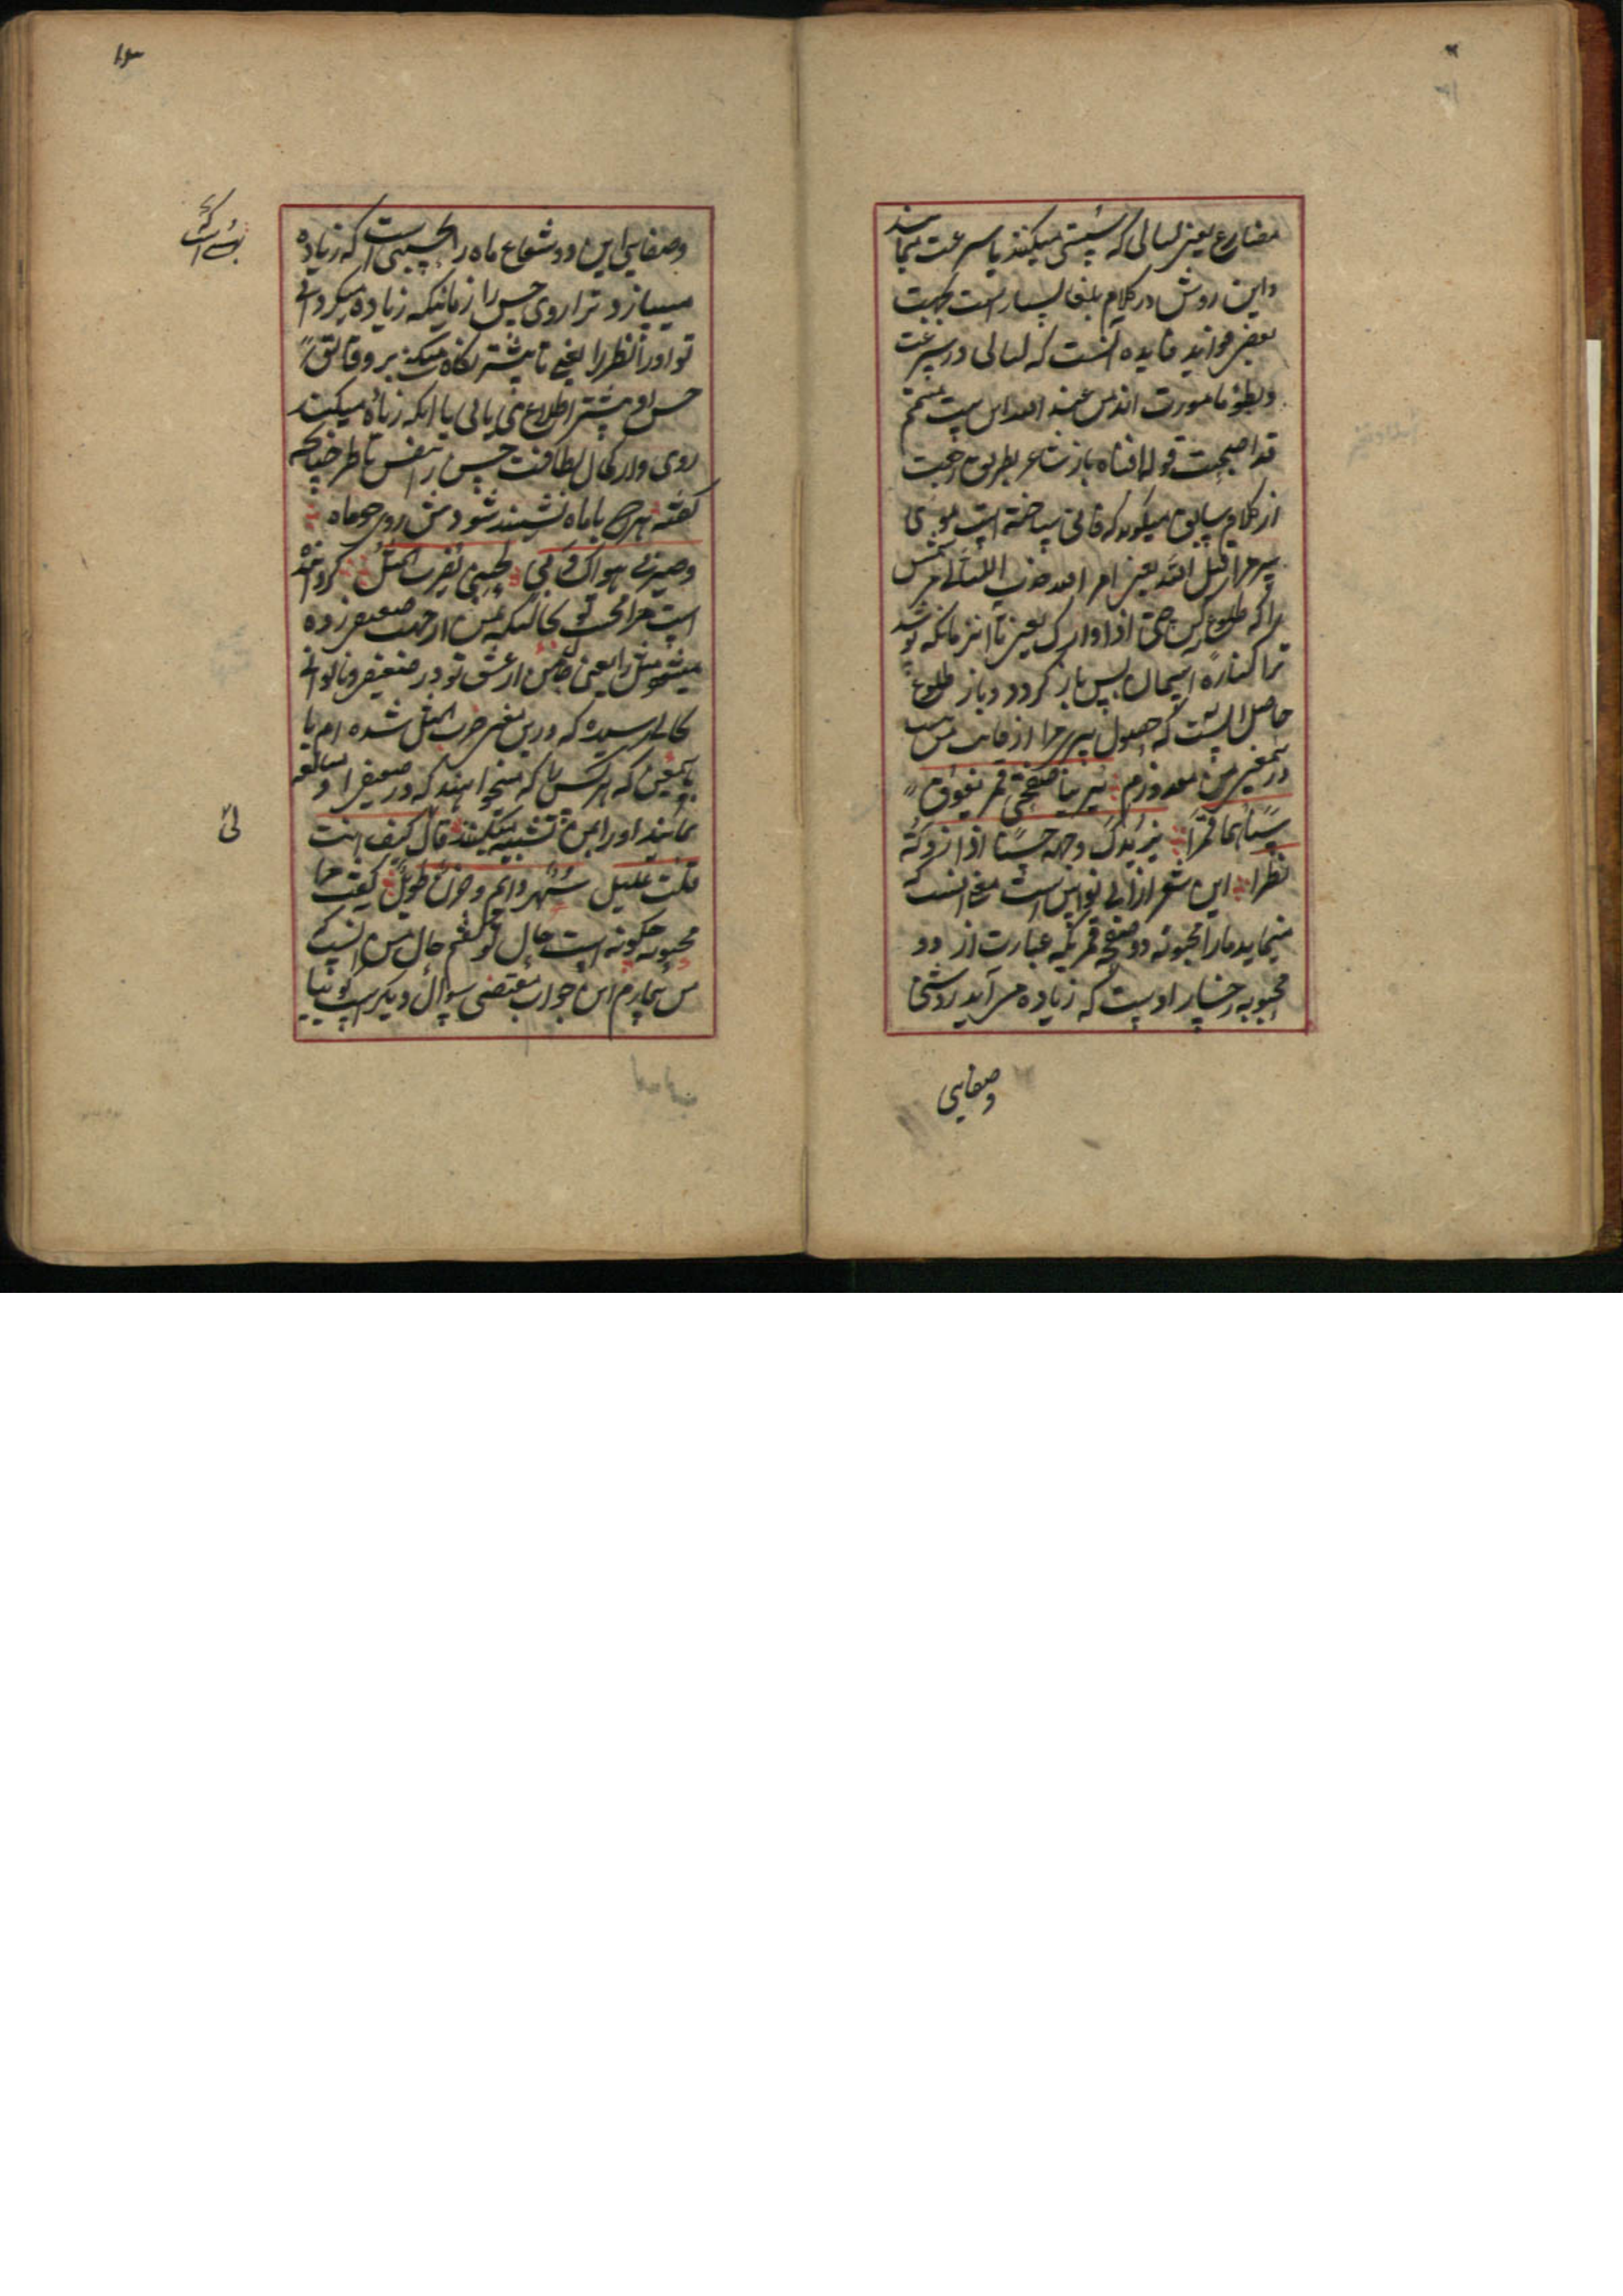 مضارع یعنی لیالی که سستی میکنند یا سرعت نمایند
واین روش در کلام بلغا بسیار است بجهت
بعضی فواید فایده آنست که لیالی در سرعت
وبطؤ مامورت اند من عند الله این بیت متمم
قد اصبحت قوله افناه باز شاعر بطریق رجعت
از کلام سابق میگوید که فانی ساخته است موی
سر مرا قیل الله یعنی امر الله
را که طلوع کن حتی اذا واراک یعنی تا انزمانکه پوشد
ترا کناره آسمان پس باز کردد وباز طلوع
حاصل اینست که حصول پیری مرا از
درینمعنی من معذورم یرینا صفحتی قمر یفوق
سناهما قمرا یزیدک وجهه حسنا اذا ما زدته
نظرا این شعر از ابی نواس است معنی آنست که
مینماید مارا محبوبه دو صفحه قمر که عبارت از دو
محبوبه رخسار اوست که زیاده می آید روشنی
وصفایی
وصفایی این دو شعاع ماه را بحسبی است که زیاده
میسازد ترا روی حسن را زمانیکه زیاده میکردانی
تو اورا نظر را یعنی تا بیشتر نکاه میکنی بر وقایق
حسن او بیشتر اطلاع می یابی یا انکه زیاده میکند
روی او از کمال لطافت حسن را بنفس ناظر چنانچه
کفته هر که با ماه نشیند شودش روی چو ماه
وصیرنی هواک وبی لحینی یضرب المثل کردانیده
است مرا محبت تو بحالتیکه من از جهت ضعیفی زده
میشود مثل را یعنی حال من از عشق تو در ضعیفی وناتوانی
بحالی رسیده که درین معنی ضرب المثل شده ام یا
باینمعنی که هر کس را که میخواهند که در ضعیفی او مبالغه
نمایند اورا بمن تشبیه میکنند قال لی کیف انت
قلت علیل سهر دائم وحزن طویل کفت مرا
محبوبه چکونه است حال تو کفتم حال من اینست که
من بیمارم این جواب مقتضی سوال دیکر است کوئیا
لی